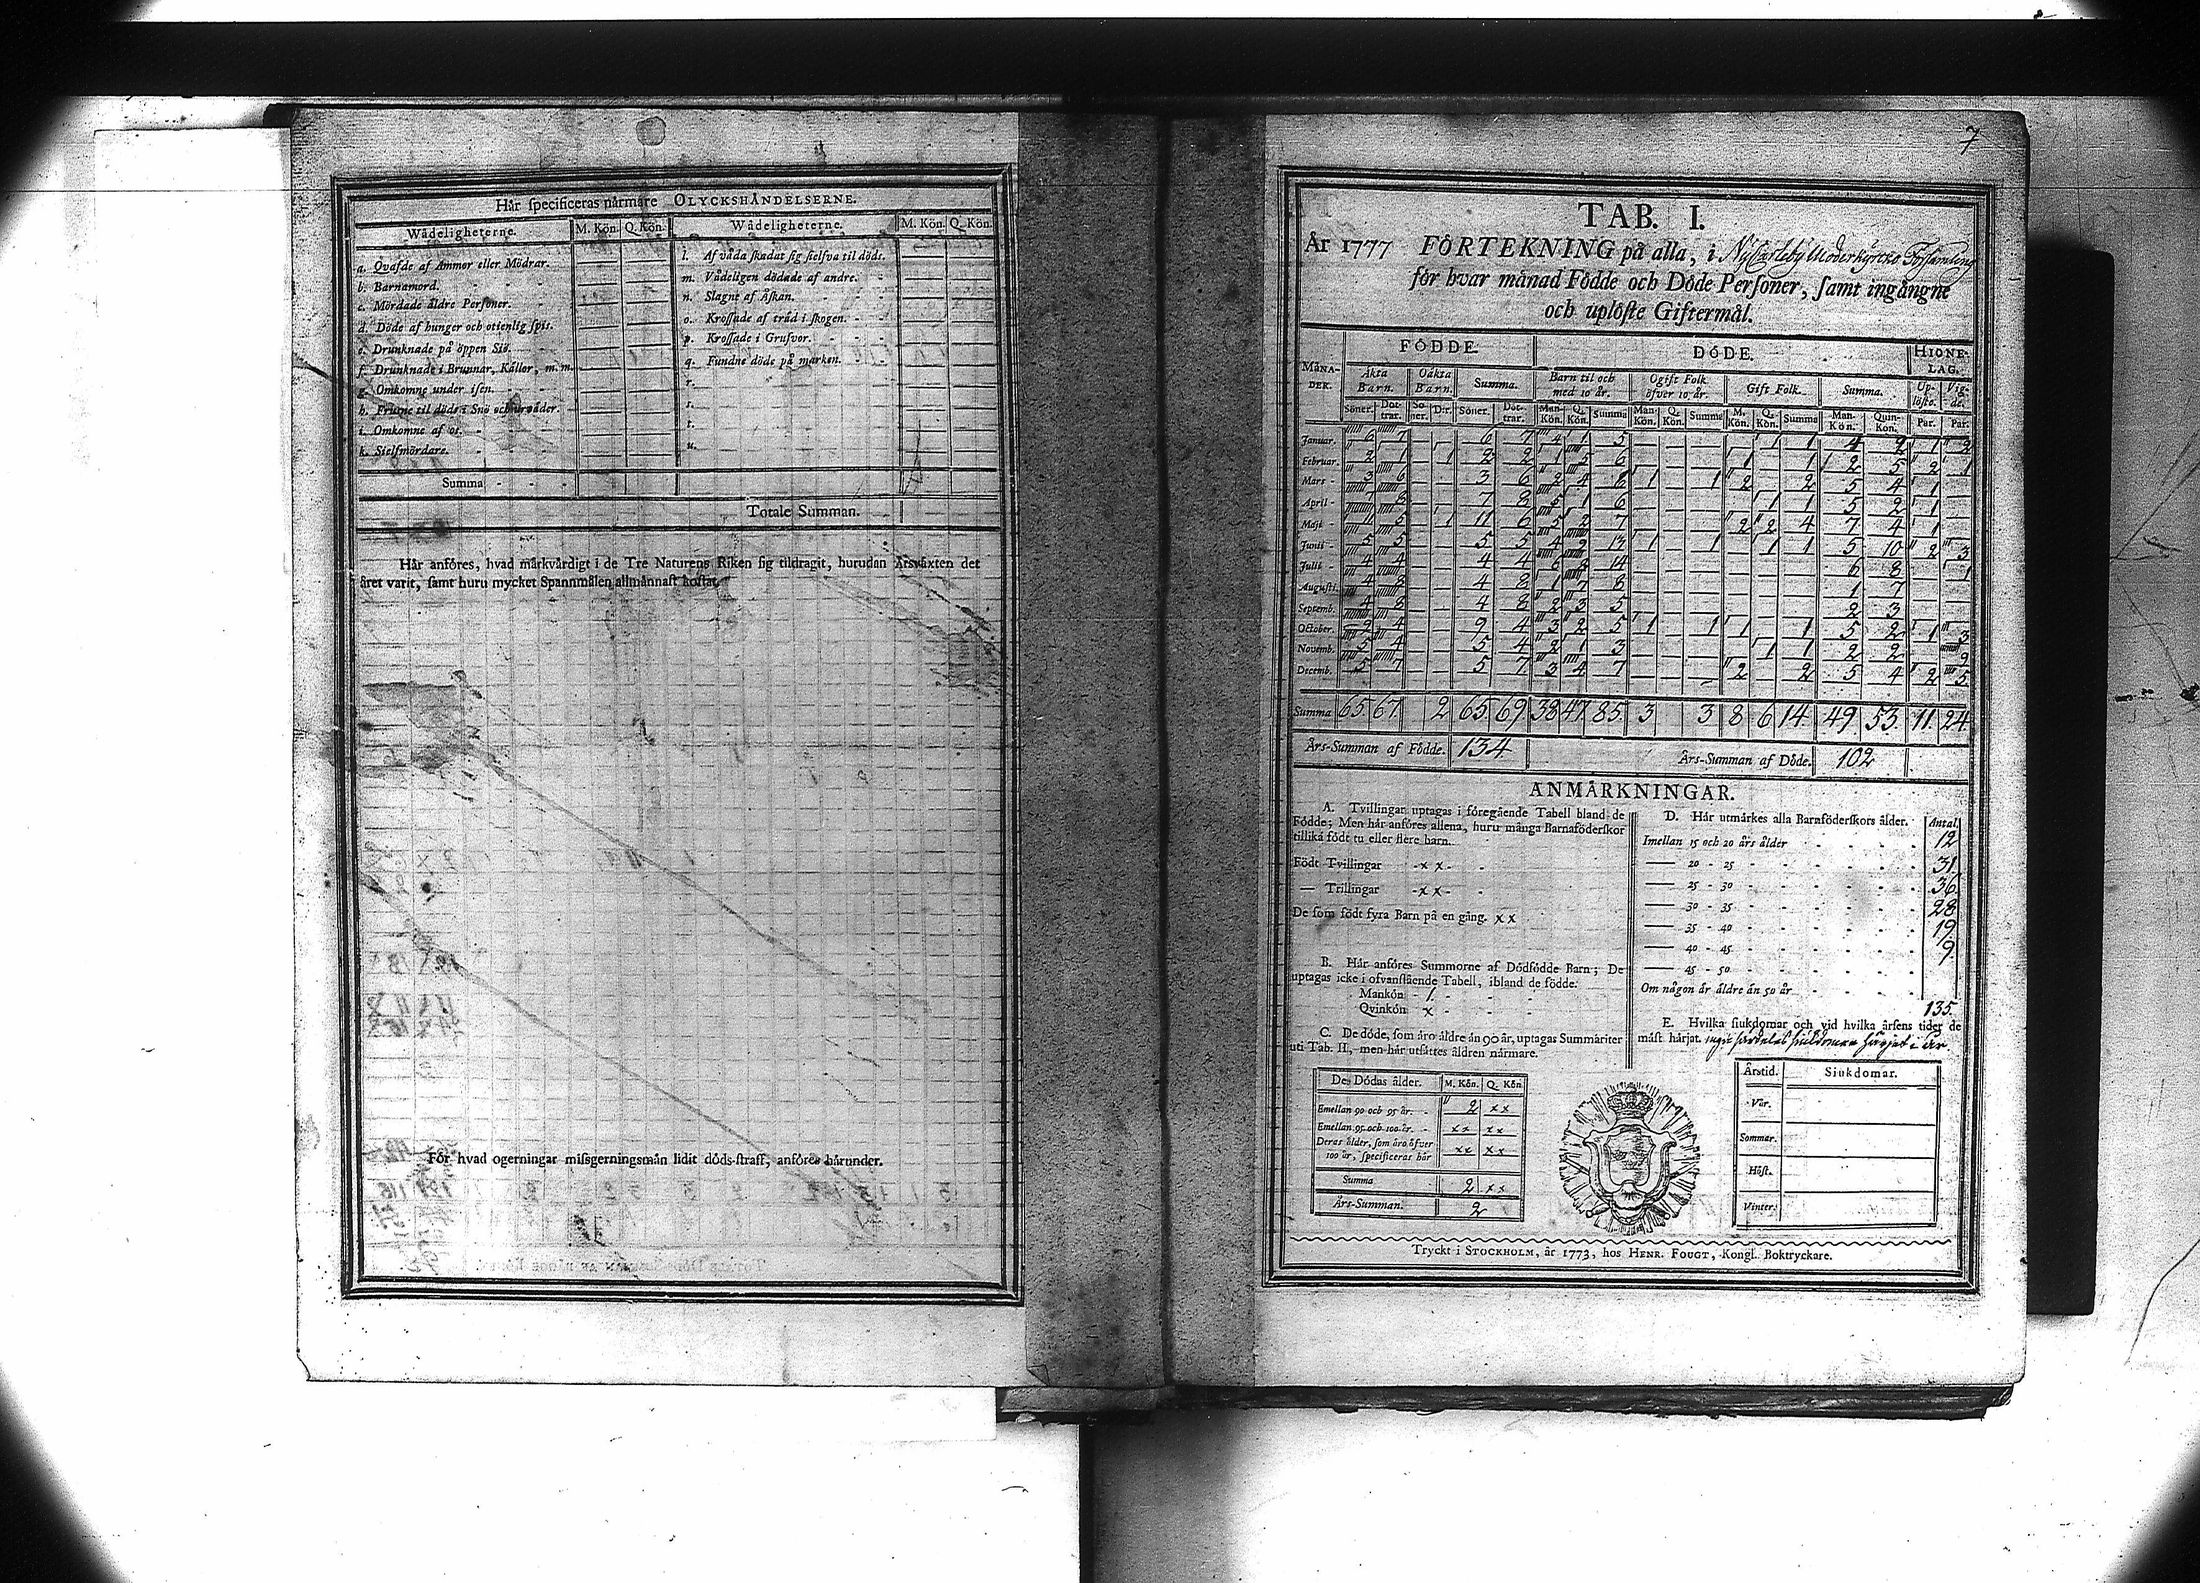 Här specificeras närmare OLYCKSHÄNDELSERNE.
Wådeligheterne. M. Kön. Q. Kön. Wådeligheterne. M. Kön. Q. Kön.
a. Qvafde af Ammor eller Mödrar.
b. Barnamord.
c. Mördade äldre Personer.
d. Döde af hunger och otienlig spis.
e. Drunknade på öppen Siö.
f. Drunknade i Brunnar, Källor, m.m.
g. Omkomne under isen.
h. Frusne til döds i Snö och urväder.
i. Omkomne af os.
k. Sielfmördare.
l. Af våda skadat sig sielfva til döds.
m. Vådeligen dödade af andre.
n. Slagne af Åskan.
o. Krossade af träd i skogen.
p. Krossade i Grufvor.
q. Fundne döde på marken.
r.
s.
t.
u.
Summa
Totale Summan.
Här anföres, hvad märkvärdigt i de Tre Naturens Riken sig tildragit, hurudan Årsväxten det
året varit, samt huru mycket Spannmålen allmännast kostat.
För hvad ogerningar missgerningsmän lidit döds-straff, anföres härunder.
7
TAB. I.
År 1777 FÖRTEKNING på alla, i NyCarleby Moderkyrcko Församling
för hvar månad Födde och Döde Personer, samt ingångne
och uplöste Giftermål.
MÅNA-DER. FÖDDE. DÖDE. HIONE-LAG.
Äkta Barn. Oäkta Barn. Summa. Barn til och med 10 år. Ogift Folk öfver 10 år. Gift Folk. Summa. Up-löste. Vig-de.
Söner. Döt-trar. Sö-ner. D:r. Söner. Döt-trar. Man-Kön. Q. Kön. Summa Man-Kön. Q. Kön. Summa M. Kön. Q. Kön. Summa Man-Kön. Quin-Kön. Par. Par.
Januar. 6 7 — — 6 7 4 1 5 — — — — 1 1 4 2 1 2
Februar. 2 1 — 1 2 2 1 5 6 — — — 1 — 1 2 5 2 1
Mars 3 6 — — 3 6 2 4 6 1 — 1 2 — 2 5 4 1 —
April 7 8 — — 7 8 5 1 6 — — — — 1 1 5 2 1 —
Maji 11 5 — 1 11 6 5 2 7 — — — 2 2 4 7 4 1 —
Junii 5 5 — — 5 5 4 9 13 1 — 1 — 1 1 5 10 2 3
Julii 4 4 — — 4 4 6 8 14 — — — — — — 6 8 — 1
Augusti. 4 8 — — 4 8 1 7 8 — — — — — — 1 7 — —
Septemb. 4 8 — — 4 8 2 3 5 — — — — — — 2 3 — —
October. 9 4 — — 9 4 3 2 5 1 — 1 1 — 1 5 2 1 3
Novemb. 5 4 — — 5 4 2 1 3 — — — — 1 1 2 2 — 9
Decemb. 5 7 — — 5 7 3 4 7 — — — 2 — 2 5 4 2 5
Summa 65. 67. 2 65. 69. 38 47. 85. 3 3 8 6 14. 49. 53. 11. 24.
Års-Summan af Födde. 134. Års-Summan af Döde. 102
ANMÄRKNINGAR.
A. Tvillingar uptagas i föregående Tabell bland de
Födde; Men här anföres allena, huru många Barnaföderskor
tillika födt tu eller flere barn.
Födt Tvillingar - x x -
— Trillingar - x x -
De som födt fyra Barn på en gång. x x
B. Här anföres Summorne af Dödfödde Barn; De
uptagas icke i ofvanstående Tabell, ibland de födde.
Mankön 1.
Qvinkön x
C. De döde, som äro äldre än 90 år, uptagas Summariter
uti Tab. II, men här utsättes åldren närmare.
De Dödas ålder. M. Kön. Q. Kön
Emellan 90 och 95 år. 2 xx
Emellan 95 och 100 år. xx xx
Deras ålder, som äro öfver
100 år, specificeras här xx xx
Summa 2 xx
Års-Summan. 2
D. Här utmärkes alla Barnföderskors ålder. Antal.
Imellan 15 och 20 års ålder 12
— 20 - 25 31.
— 25 - 30 36.
— 30 - 35 28
— 35 - 40 19.
— 40 - 45 9.
— 45 - 50
Om någon är äldre än 50 år
135.
E. Hvilka siukdomar och vid hvilka årsens tider de
mäst härjat. inga särdeles siukdomar härjat i år
Årstid. Siukdomar.
Vår.
Sommar.
Höst.
Vinter.
Tryckt i STOCKHOLM, år 1773, hos HENR. FOUGT, Kongl. Boktryckare.